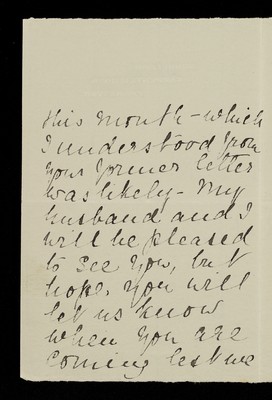 this month - which
I understood from
your former letter
was likely - My
husband and I
will be pleased
to see you, but
hope, you will
let us know
when you are
coming lest we